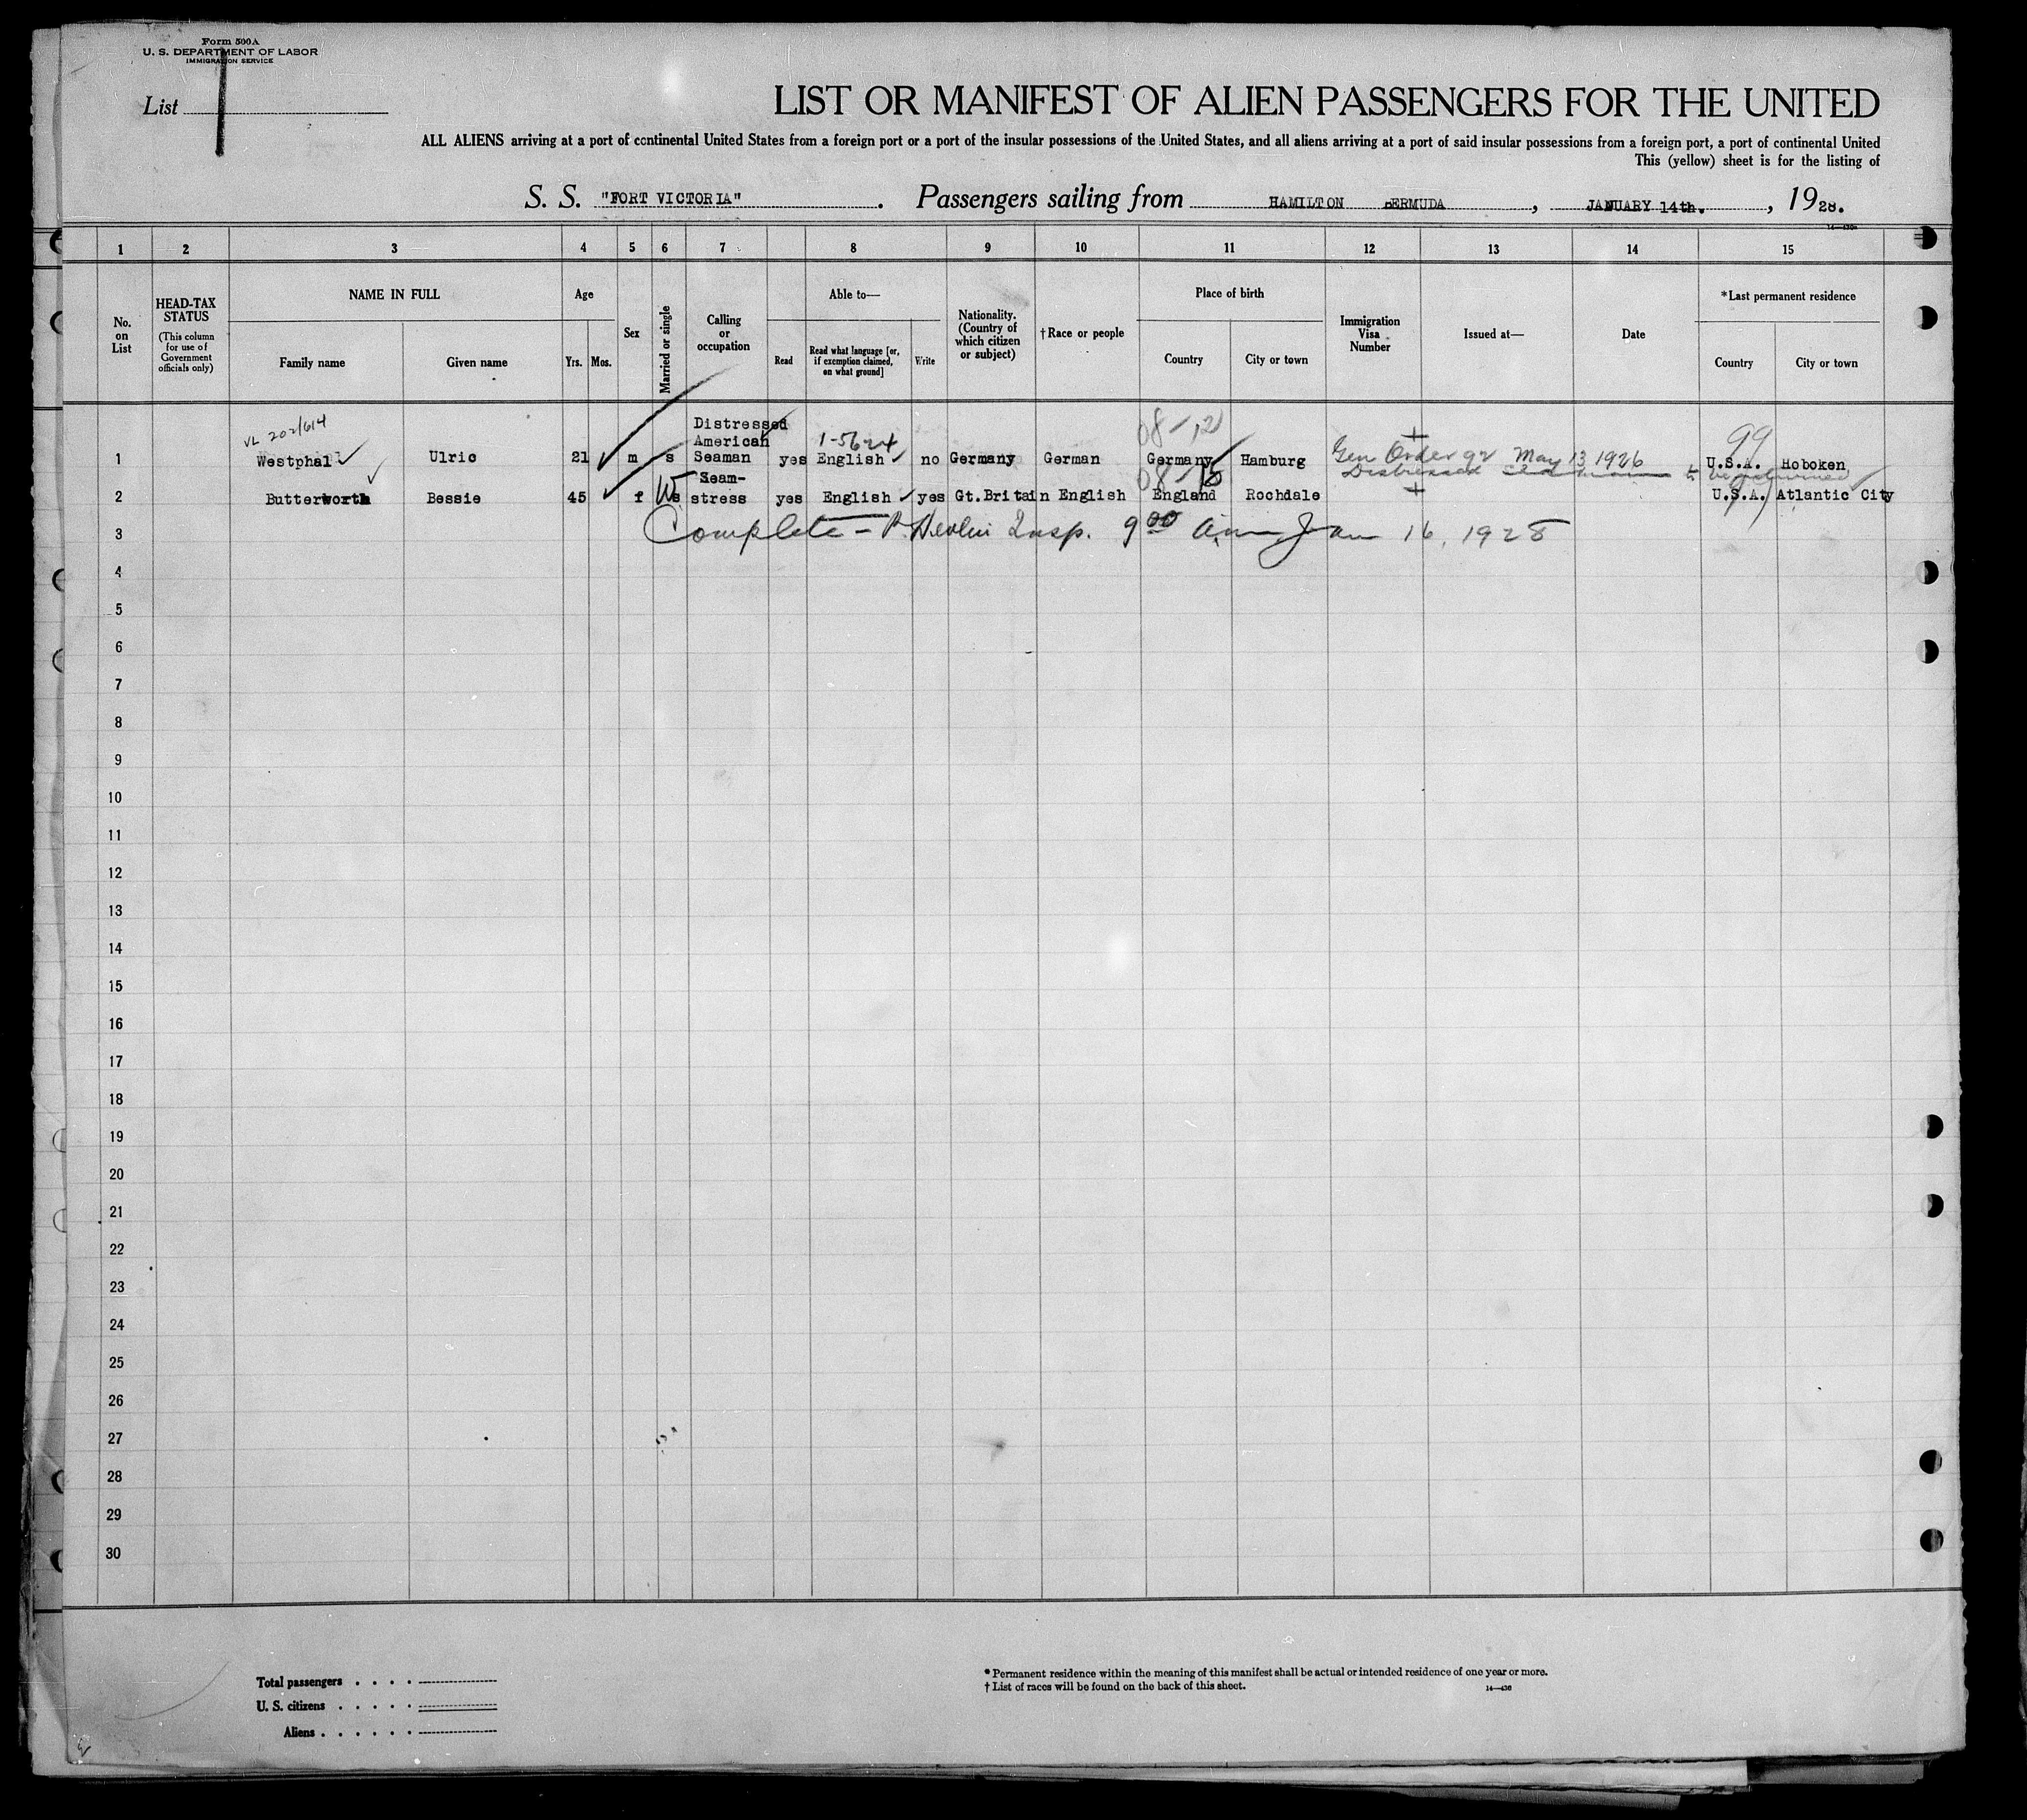 Form 500A
U. S. DEPARTMENT OF LABOR
IMMIGRATION SERVICE
List
LIST OR MANIFEST OF ALIEN PASSENGERS FOR THE UNITED
ALL ALIENS arriving at a port of continental United States from a foreign port or a port of the insular possessions of the United States, and all aliens arriving at a port of said insular possessions from a foreign port, a port of continental United
This (yellow) sheet is for the listing of
S. S. "FORT VICTORIA" . Passengers sailing from HAMILTON BERMUDA , JANUARY 14th. , 1928.
1 2 3 4 5 6 7 8 9 10 11 12 13 14 15
No. on List
HEAD-TAX STATUS
(This column for use of Government officials only)
NAME IN FULL
Family name Given name
Age
Yrs. Mos.
Sex
Married or single
Calling or occupation
Able to—
Read
Read what language [or, if exemption claimed, on what ground]
Write
Nationality. (Country of which citizen or subject)
†Race or people
Place of birth
Country City or town
Immigration Visa Number
Issued at—
Date
*Last permanent residence
Country City or town
VL 202/614
1-5624
99
Gen Order 92 May 13 1926
Distressed
1 Westphal Ulric 21 m s Distressed American Seaman yes English no Germany German Germany Hamburg U.S.A. Hoboken
2 Butterworth Bessie 45 f W Seam- stress yes English yes Gt.Britain English England Rochdale U.S.A. Atlantic City
3 Complete - P. Devlin Insp. 9 00 am Jan 16, 1928
4
5
6
7
8
9
10
11
12
13
14
15
16
17
18
19
20
21
22
23
24
25
26
27
28
29
30
Total passengers . . . .
U. S. citizens . . . . .
Aliens . . . . . .
* Permanent residence within the meaning of this manifest shall be actual or intended residence of one year or more.
† List of races will be found on the back of this sheet.
14—430